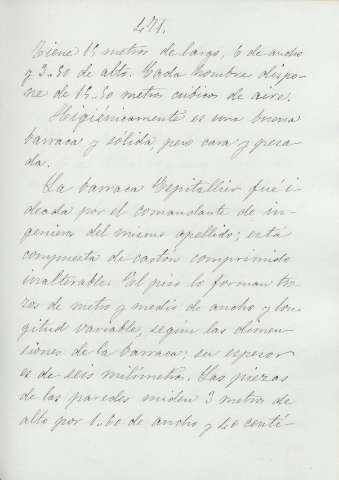 471.
Tiene 15 metros de largo, 6 de ancho
y 3..50 de alto. Cada hombre dispo-
ne de 15..50 metros cúbicos de aire.
Higiénicamente es una buena
barraca y sólida pero cara y pesa-
da.
La barraca Espitallier fué i-
deada por el comandante de in-
genieros del mismo apellido; está
compuesta de carton comprimido
inalterable. El piso lo forman tro-
zos de metro y medio de ancho y lon-
gitud variable, segun las dimen-
siones de la barraca; su espesor
es de seis milímetros. Las piezas
de las paredes miden 3 metros de
alto por 1..60 de ancho y 40 centí-